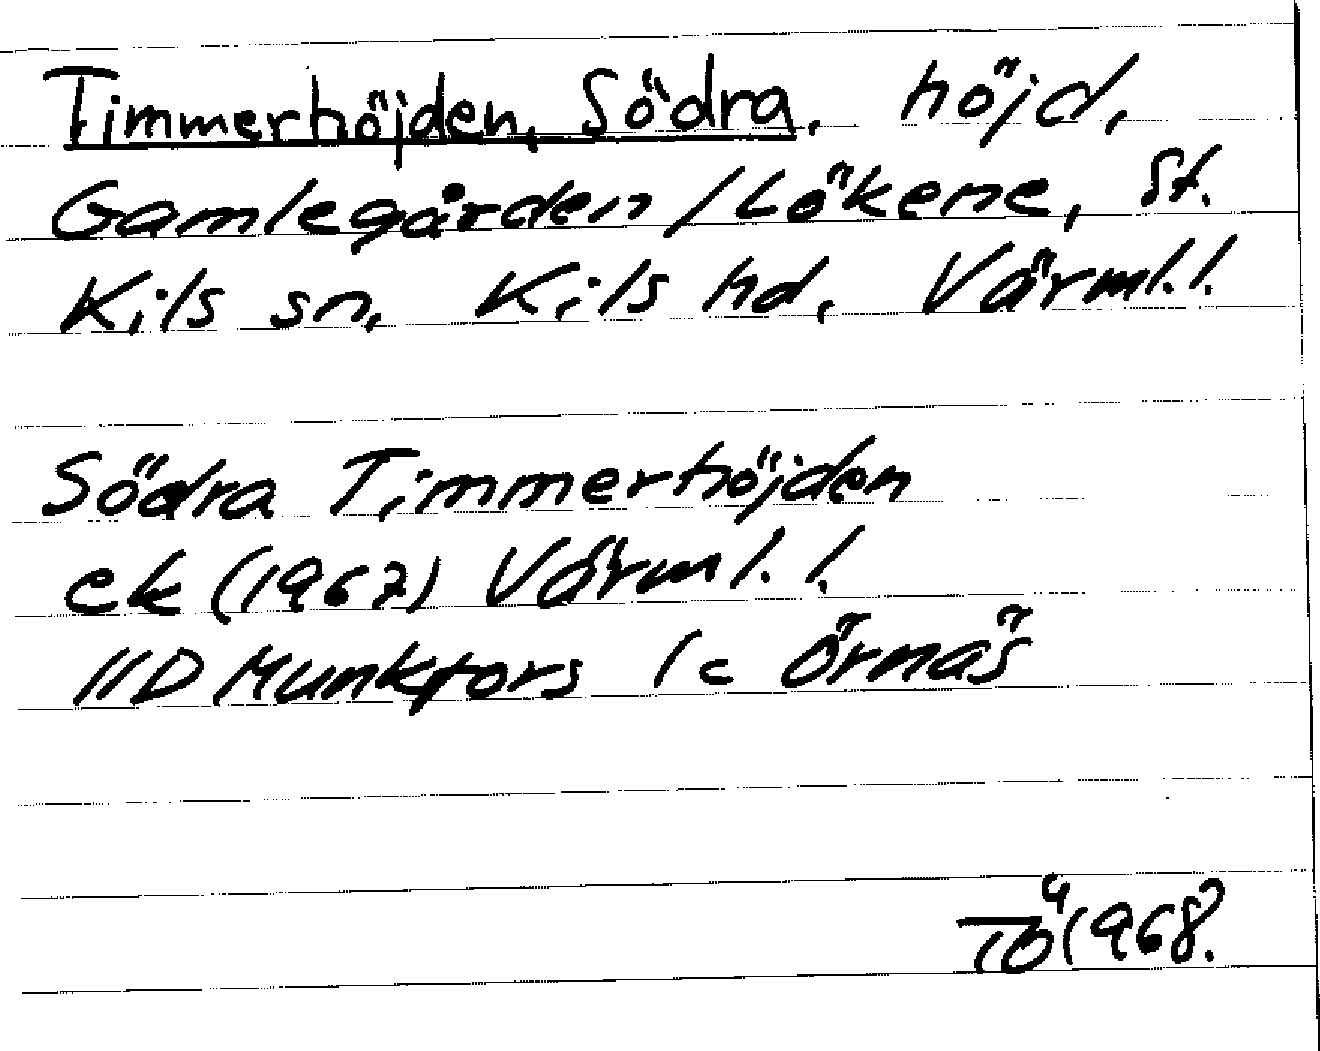 Timmerhöjden, Södra, höjd,
Gamlegården / Lökene, St.
Kils sn, Kils hd, Värml. l.
Södra Timmerhöjden
ek (1967) Värml. l.
11D Munkfors 1c Örnäs
Tö 1968.